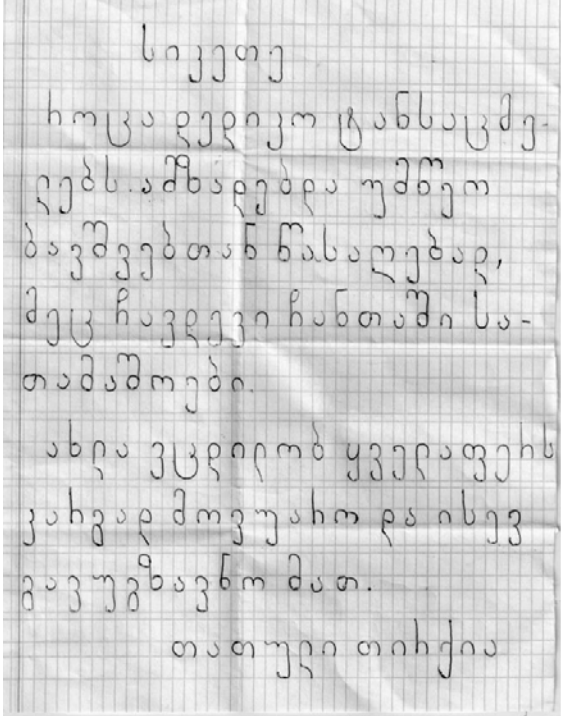 სიკეთე
როცა დედიკო ტანსაცმე-
ლებს ამზადებდა უმწეო
ბავშვებთან წასაღებად,
მეც ჩავდევი ჩანთაში სა-
თამაშოები.
ახლა ვცდილობ ყველაფერს
კარგად მოვუარო და ისევ
გავუგზავნო მათ.
თათული თირქია